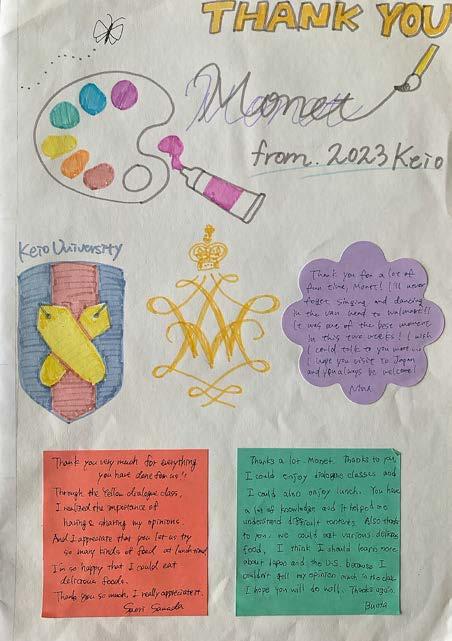 THANK YOU
Monet
from. 2023 Keio
Keio University
Thank you for a lot of
fun time, Monet! I'll never
forget singing and dancing
in the van head to Walmart!!
It was one of the best moment
in this two weeks! I wish
I could talk to you more
I hope you visit to Japan
and you always be welcome!
Nina
Thank you very much for everything
you have done for us!!
Through the Yellow dialogue class,
I realized the importance of
having & sharing my opinions.
And I appreciate that you let us try
so many kinds of food at lunchtime!
I'm so happy that I could eat
delicious foods.
Thank you so much, I really appreciate it.
Saori
Thanks a lot Monet. Thanks to you,
I could enjoy dialogue classes and
I could also enjoy lunch. You have
a lot of knowledge and it helped me
understand difficult contents. Also thanks
to you, we could eat various delicious
food. I think I should learn more
about Japan and the U.S. because I
couldn't tell my opinion much in the class.
I hope you will do well. Thanks again.